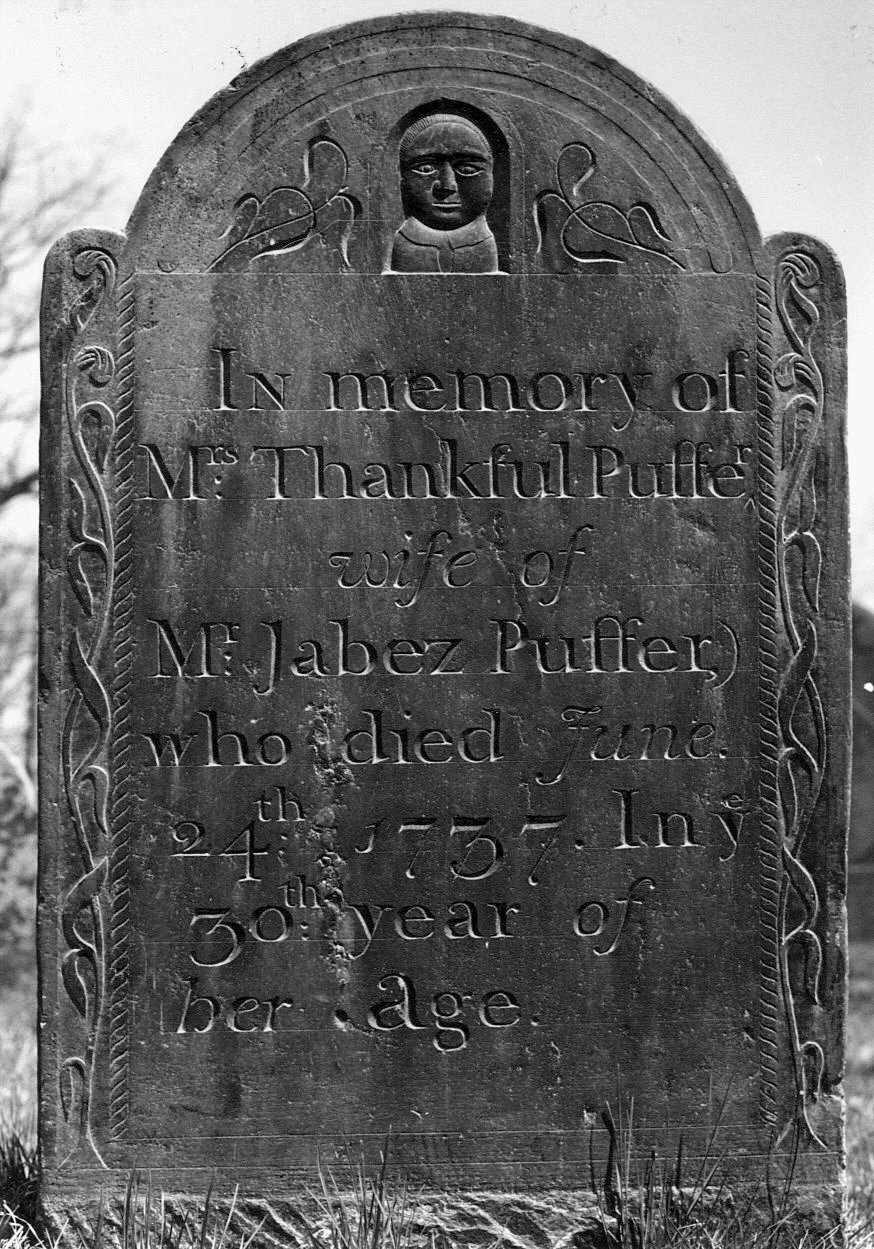 In memory of
Mʳˢ: Thankful Puffeʳ
wife of
Mʳ: Jabez Puffer,)
who died June.
24ᵗʰ: 1737. In yᵉ
30ᵗʰ: year of
her age.